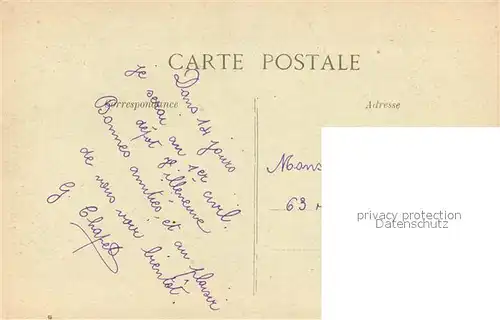 CARTE POSTALE
Correspondance
Adresse
Dans 14 jours
je serai au 1er civil.
dépôt
Bonnes amitiés et au plaisir
de nous voir bientôt.
G. Chapet
Mons
63
privacy protection
Datenschutz